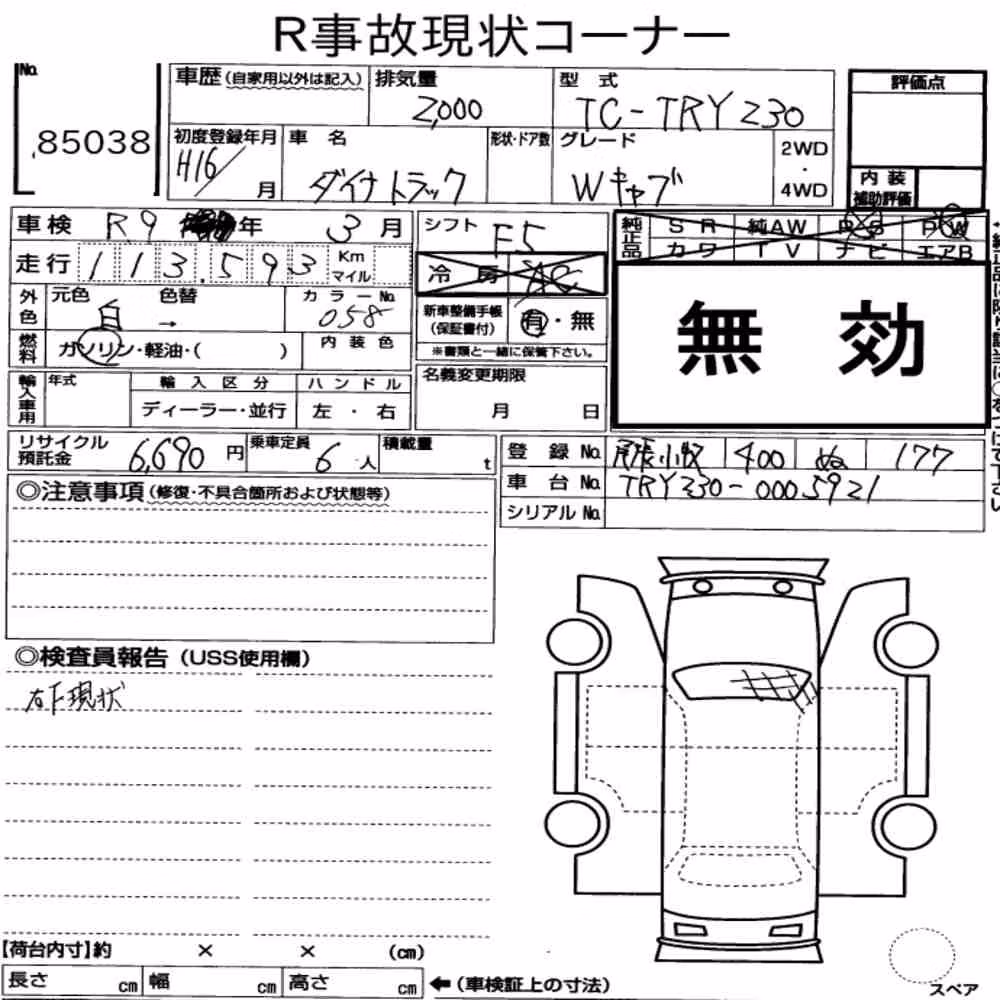 R事故現状コーナー
No. 85038
車歴(自家用以外は記入) 排気量 2,000 型式 TC-TRY230
評価点
初度登録年月 H16/ 月 車名 ダイナトラック 形状・ドア数 グレード Wキャブ 2WD・4WD
内装補助評価
車検 R9 年 3月 シフト F5
純正品 SR 純AW PS PW
カワ TV ナビ エアB
走行 113,593 Km マイル 冷房 AC
無効
外色 元色 白 色替 → カラーNo. 058
新車整備手帳(保証書付) 有・無
※書類と一緒に保管下さい。
燃料 ガソリン・軽油・( ) 内装色
名義変更期限 月 日
輸入車用 年式 輸入区分 ハンドル
ディーラー・並行 左・右
リサイクル預託金 6,690円 乗車定員 6人 積載量 t
登録No. 尾張小牧 400 ぬ 177
車台No. TRY230-0005921
シリアルNo.
◎注意事項(修復・不具合箇所および状態等)
◎検査員報告(USS使用欄)
右下現状
【荷台内寸】約 × × (cm)
長さ cm 幅 cm 高さ cm ←(車検証上の寸法)
スペア